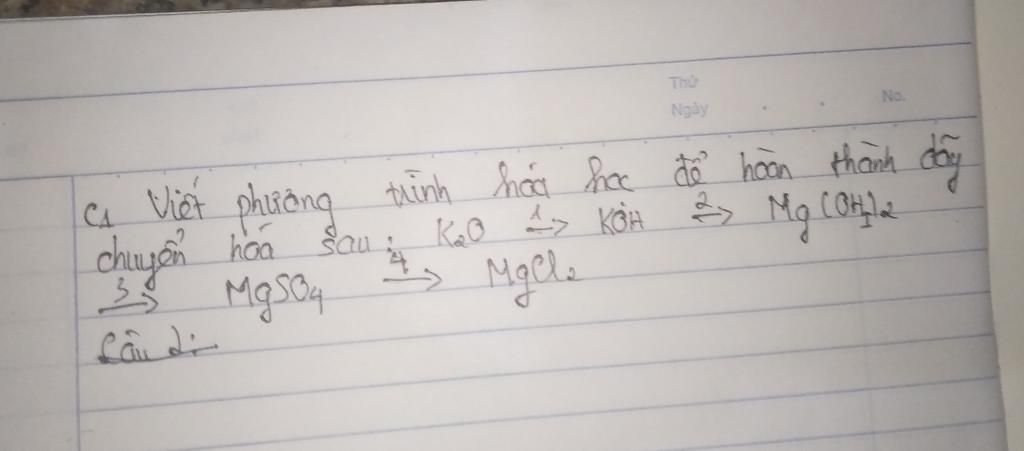 Thứ
Ngày . . No.
C1 Viết phương trình hóa học để hoàn thành dãy
chuyển hóa sau: K₂O 1→ KOH 2→ Mg(OH)₂
3→ MgSO₄ 4→ MgCl₂
Câu 2: